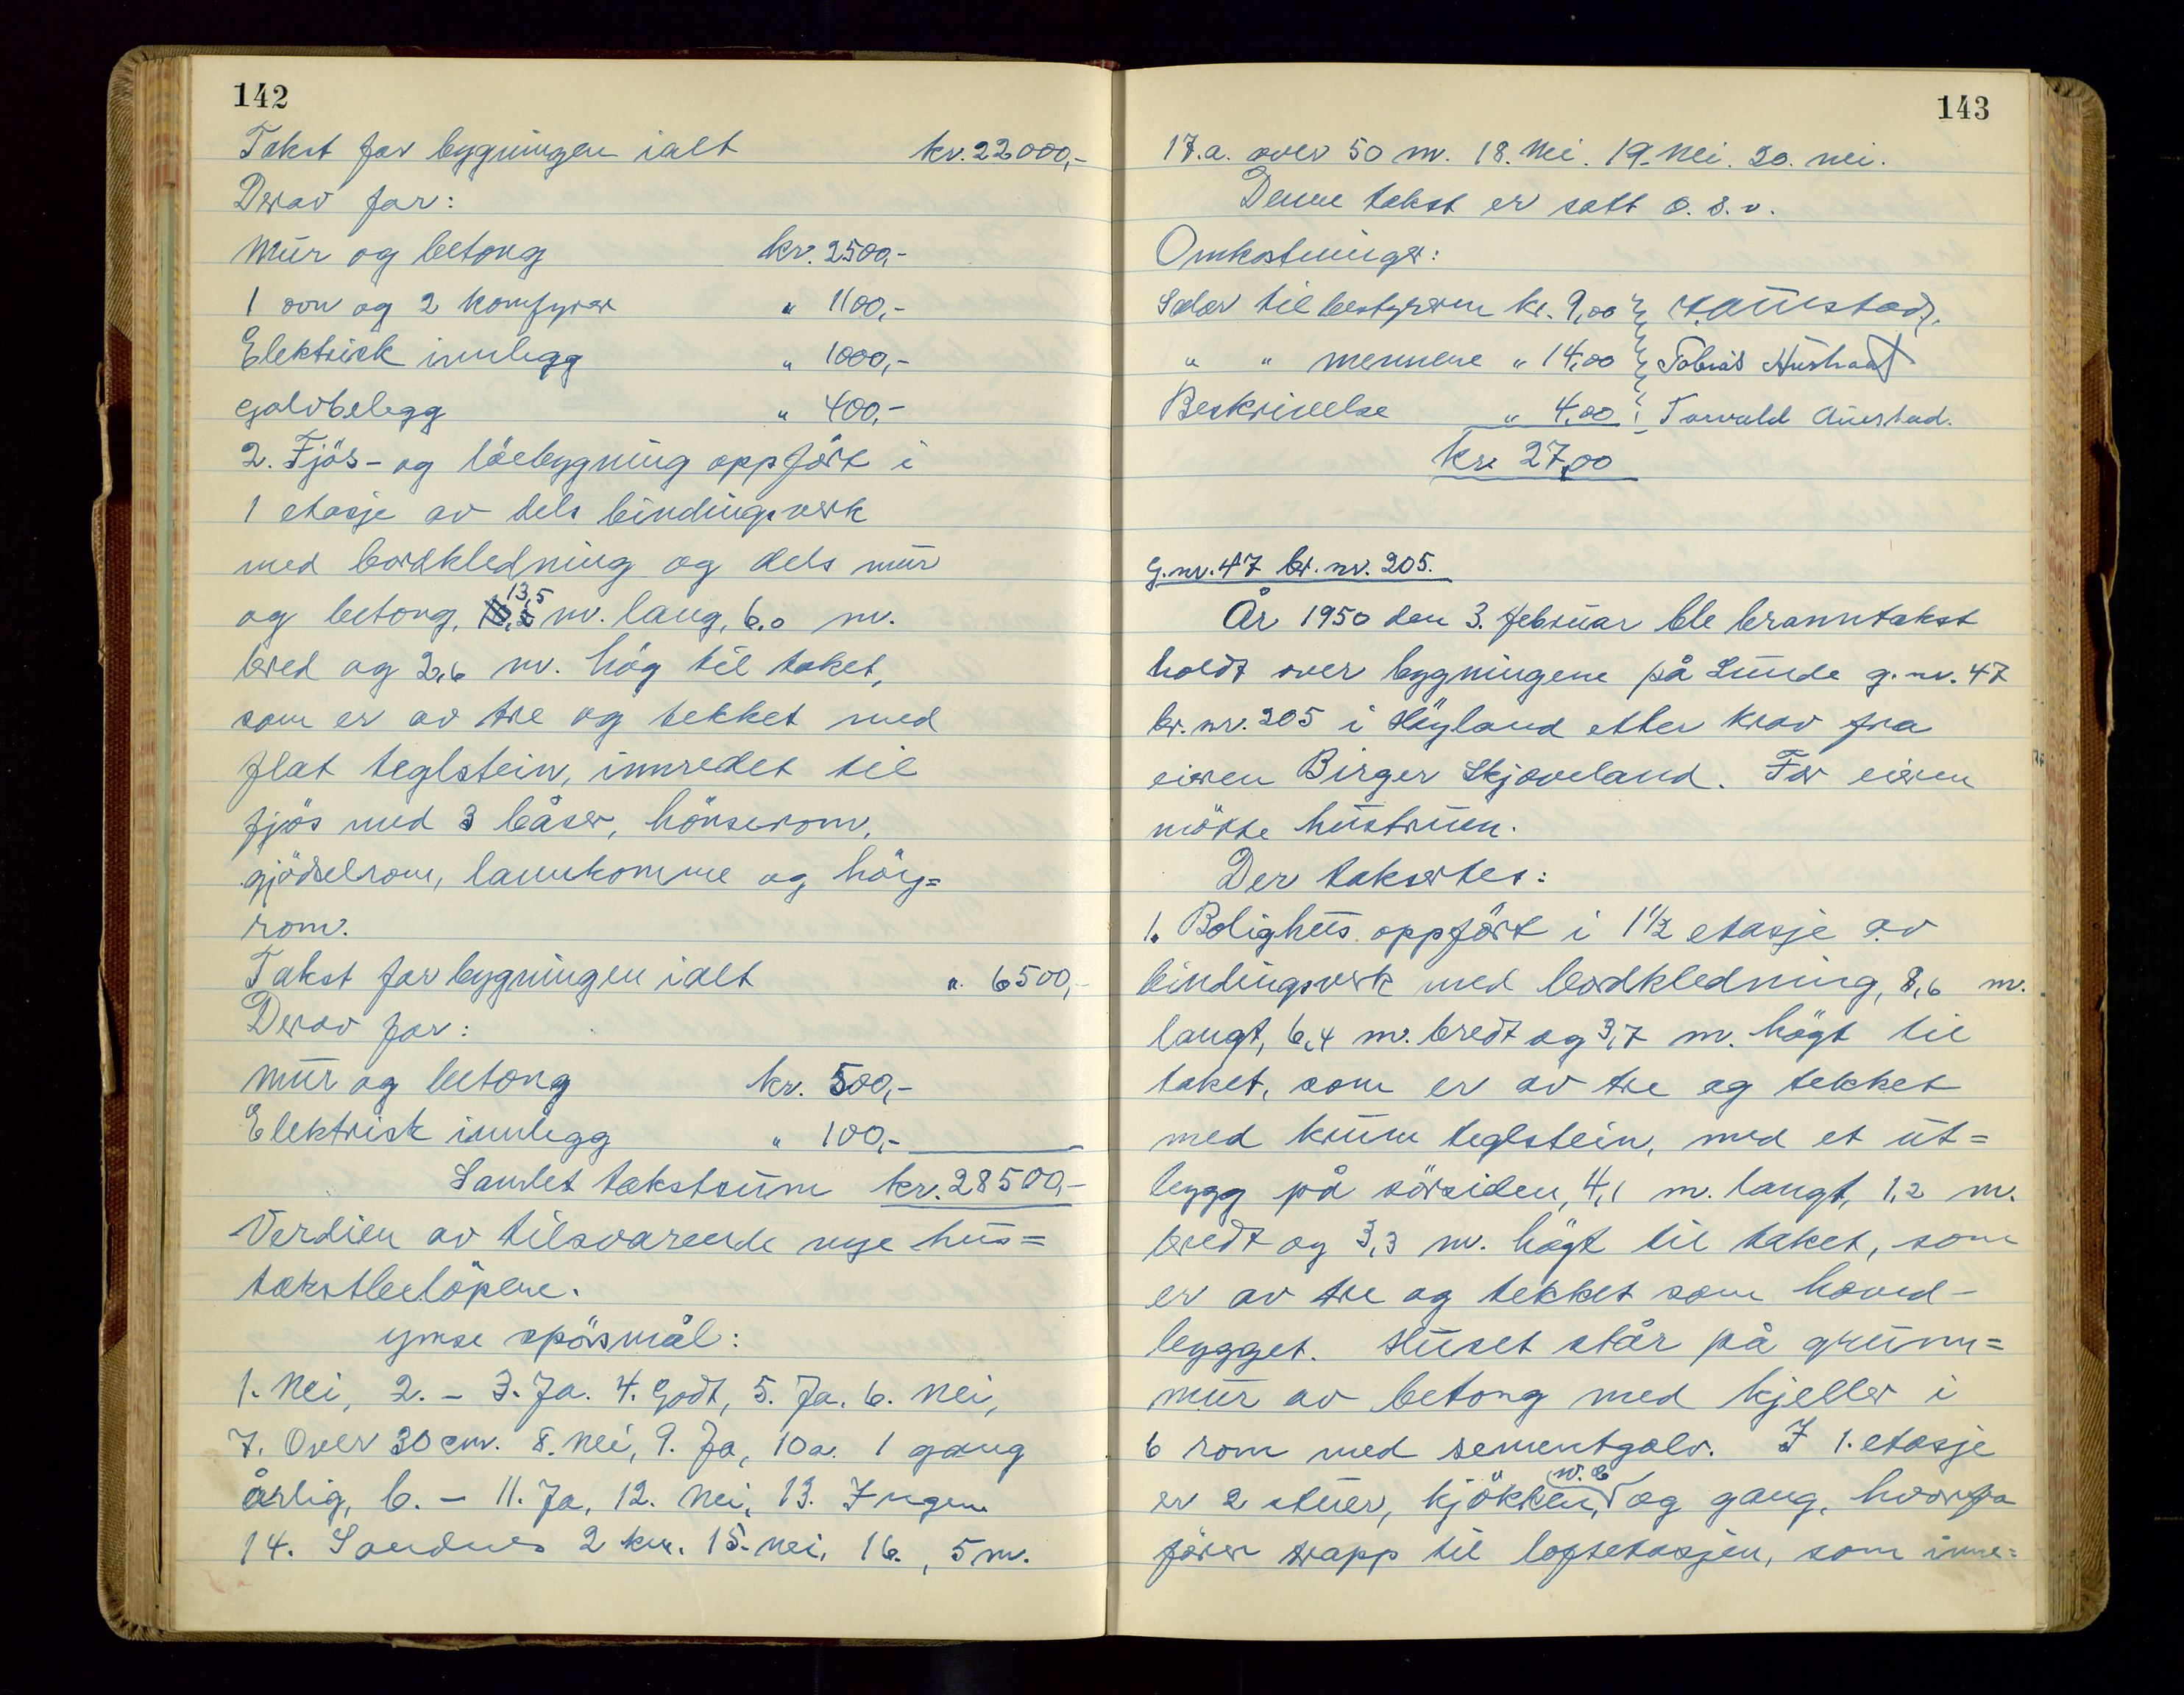 142
Takst for bygningen ialt kr. 22000,-
Derav for:
Mur og betong kr. 2500,-
1 ovn og 2 komfyrer " 1100,-
Elektrisk innlegg " 1000,-
Golvbelegg " 400,-
2. Fjös- og löebygning oppfört i
1 etasje av dels bindingsverk
med bordkledning og dels mur
og betong, 13,5 m. lang, 6.0 m.
bred og 2,6 m. hög til taket,
som er av tre og tekket med
flat teglstein, innredet til
fjös med 3 båser, hönserom,
gjödselrom, landkomme og höy=
rom.
Takst for bygningen ialt " 6500,-
Derav for:
Mur og betong kr. 500,-
Elektrisk innlegg " 100,-
Samlet takstsum kr. 28500,-
Verdien av tilsvarende nye hus=
takstbelöpene.
Ymse spörsmål:
1. Nei, 2. - 3. Ja. 4. Godt, 5. Ja. 6. Nei,
7. Over 30 cm. 8. Nei, 9. Ja, 10a. 1 gang
årlig, b. - 11. Ja, 12. Nei, 13. Ingen
14. Sandnes 2 km. 15. nei. 16. , 5 m.
143
17.a. over 50 m. 18. Nei. 19. Nei. 20. nei.
Denne takst er satt o. s. v.
Omkostninger:
Salær til bestyreren kr. 9,00
" " mennene " 14,00 Tobias Austraat
Beskrivelse " 4,00 Torvald Auestad.
kr. 27,00
G.nr. 47 br. nr. 205.
År 1950 den 3. februar ble branntakst
holdt over bygningene på Lunde g. nr. 47
br. nr. 205 i Höyland etter krav fra
eieren Birger Skjæveland. For eieren
mötte hustruen.
Der takseres:
1. Bolighus oppfört i 1½ etasje av
bindingsverk med bordkledning, 8,6 m.
langt, 6,4 m. bredt og 3,7 m. högt til
taket, som er av tre og tekket
med krum teglstein, med et ut=
bygg på sörsiden, 4,1 m. langt, 1,2 m.
bredt og 3,3 m. högt til taket, som
er av tre og tekket som hoved-
bygget. Huset står på grunn=
mur av betong med kjeller i
6 rom med sementgolv. I 1. etasje
er 2 stuer, kjökken, w.c. og gang, hvorfra
förer trapp til loftetasjen, som inne=